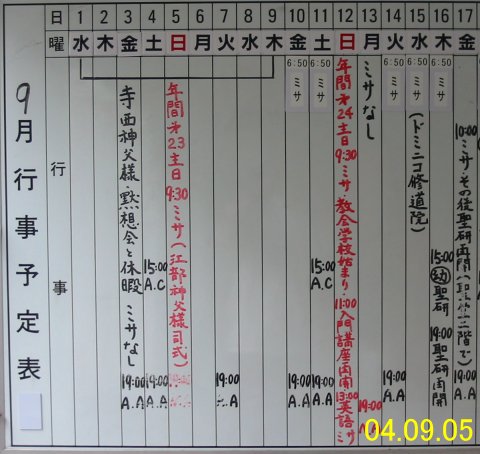 9月行事予定表
日 1 2 3 4 5 6 7 8 9 10 11 12 13 14 15 16 17
曜 水 木 金 土 日 月 火 水 木 金 土 日 月 火 水 木 金
行事
寺西神父様・黙想会と休暇 ミサなし
19:00 A.A
15:00 A.C
19:00 A.A
年間才23主日 9:30 ミサ(江部神父様司式)
19:00 A.A
6:50 ミサ
19:00 A.A
6:50 ミサ
15:00 A.C
19:00 A.A
年間才24主日 9:30 ミサ・教会学校始まり・11:00入門講座再開・13:00英語ミサ
ミサなし
19:00 A.A
6:50 ミサ
19:00 A.A
6:50 ミサ
(ドミニコ修道院)
6:50 ミサ
15:00 幼 聖研
19:00 聖研再開
10:00 ミサ・その後聖研再開
19:00 A.A
04.09.05